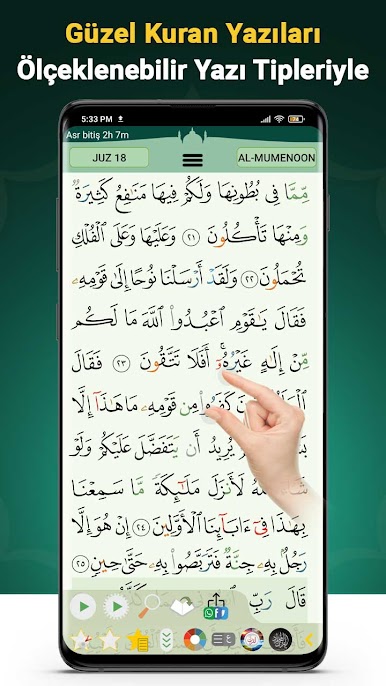 Güzel Kuran Yazıları
Ölçeklenebilir Yazı Tipleriyle
5:33 PM
Asr bitiş 2h 7m
JUZ 18
AL-MUMENOON
مِّمَّا فِي بُطُونِهَا وَلَكُمْ فِيهَا مَنَافِعُ كَثِيرَةٌ
وَمِنْهَا تَأْكُلُونَ ٢١ وَعَلَيْهَا وَعَلَى الْفُلْكِ
تُحْمَلُونَ ٢٢ وَلَقَدْ أَرْسَلْنَا نُوحًا إِلَىٰ قَوْمِهِۦ
فَقَالَ يَـٰقَوْمِ اعْبُدُوا۟ اللَّهَ مَا لَكُم
مِّنْ إِلَـٰهٍ غَيْرُهُۥٓ ۚ أَفَلَا تَتَّقُونَ ٢٣ فَقَالَ
كَفَرُوا۟ مِن قَوْمِهِۦ مَا هَـٰذَا إِلَّا
يُرِيدُ أَن يَتَفَضَّلَ عَلَيْكُمْ وَلَوْ
اللَّهُ لَأَنزَلَ مَلَـٰٓئِكَةً مَّا سَمِعْنَا
بِهَـٰذَا فِىٓ ءَابَآئِنَا الْأَوَّلِينَ ٢٤ إِنْ هُوَ إِلَّا
رَجُلٌۢ بِهِۦ جِنَّةٌ فَتَرَبَّصُوا۟ بِهِۦ حَتَّىٰ حِينٍ ٢٥
قَالَ رَبِّ